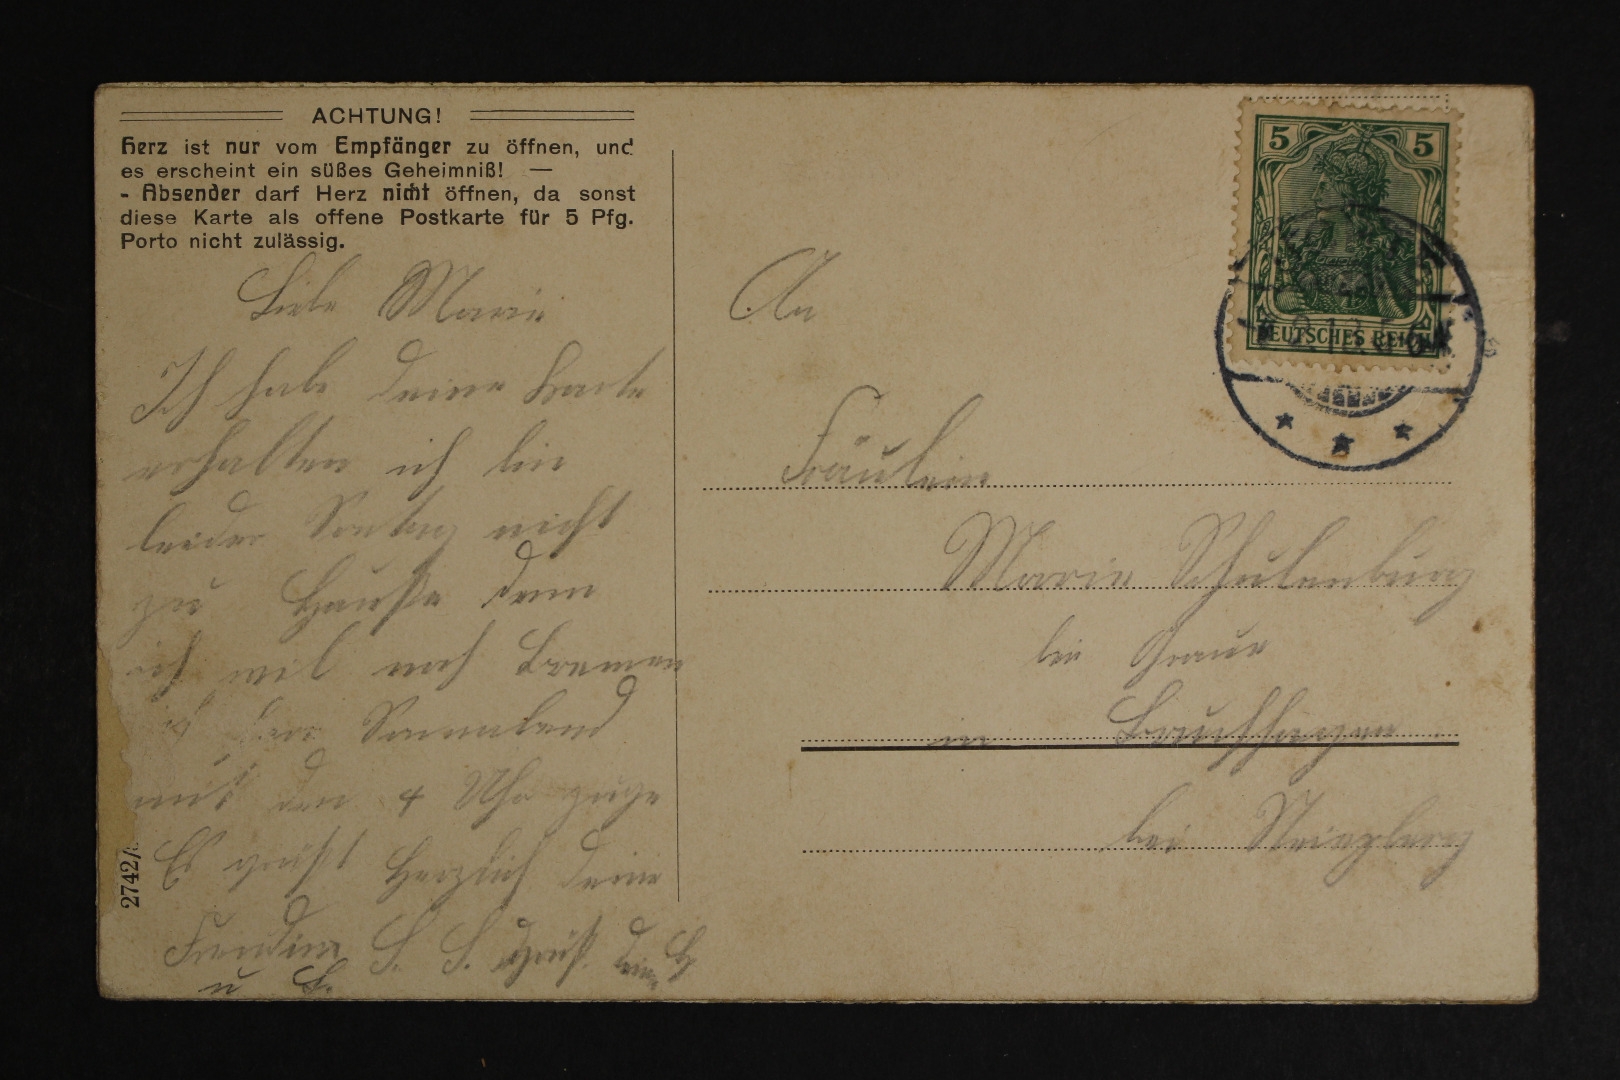 ACHTUNG!
Herz ist nur vom Empfänger zu öffnen, und
es erscheint ein süßes Geheimniß! —
- Absender darf Herz nicht öffnen, da sonst
diese Karte als offene Postkarte für 5 Pfg.
Porto nicht zulässig.
Liebe Marie
Ich habe deine Karte
erhalten ich bin
leider Sontag nicht
zu Hauße denn
ich wil nach Bremen
den Sonnabend
mit den 4 Uhr zuge
Es grüßt Herzlich deine
Freundin S. S. Gruß
u
2742/
5 5
DEUTSCHES REICH
An
Fräulein
Marie Schulenburg
bei Graue
in Bruchhagen
bei Steyerberg